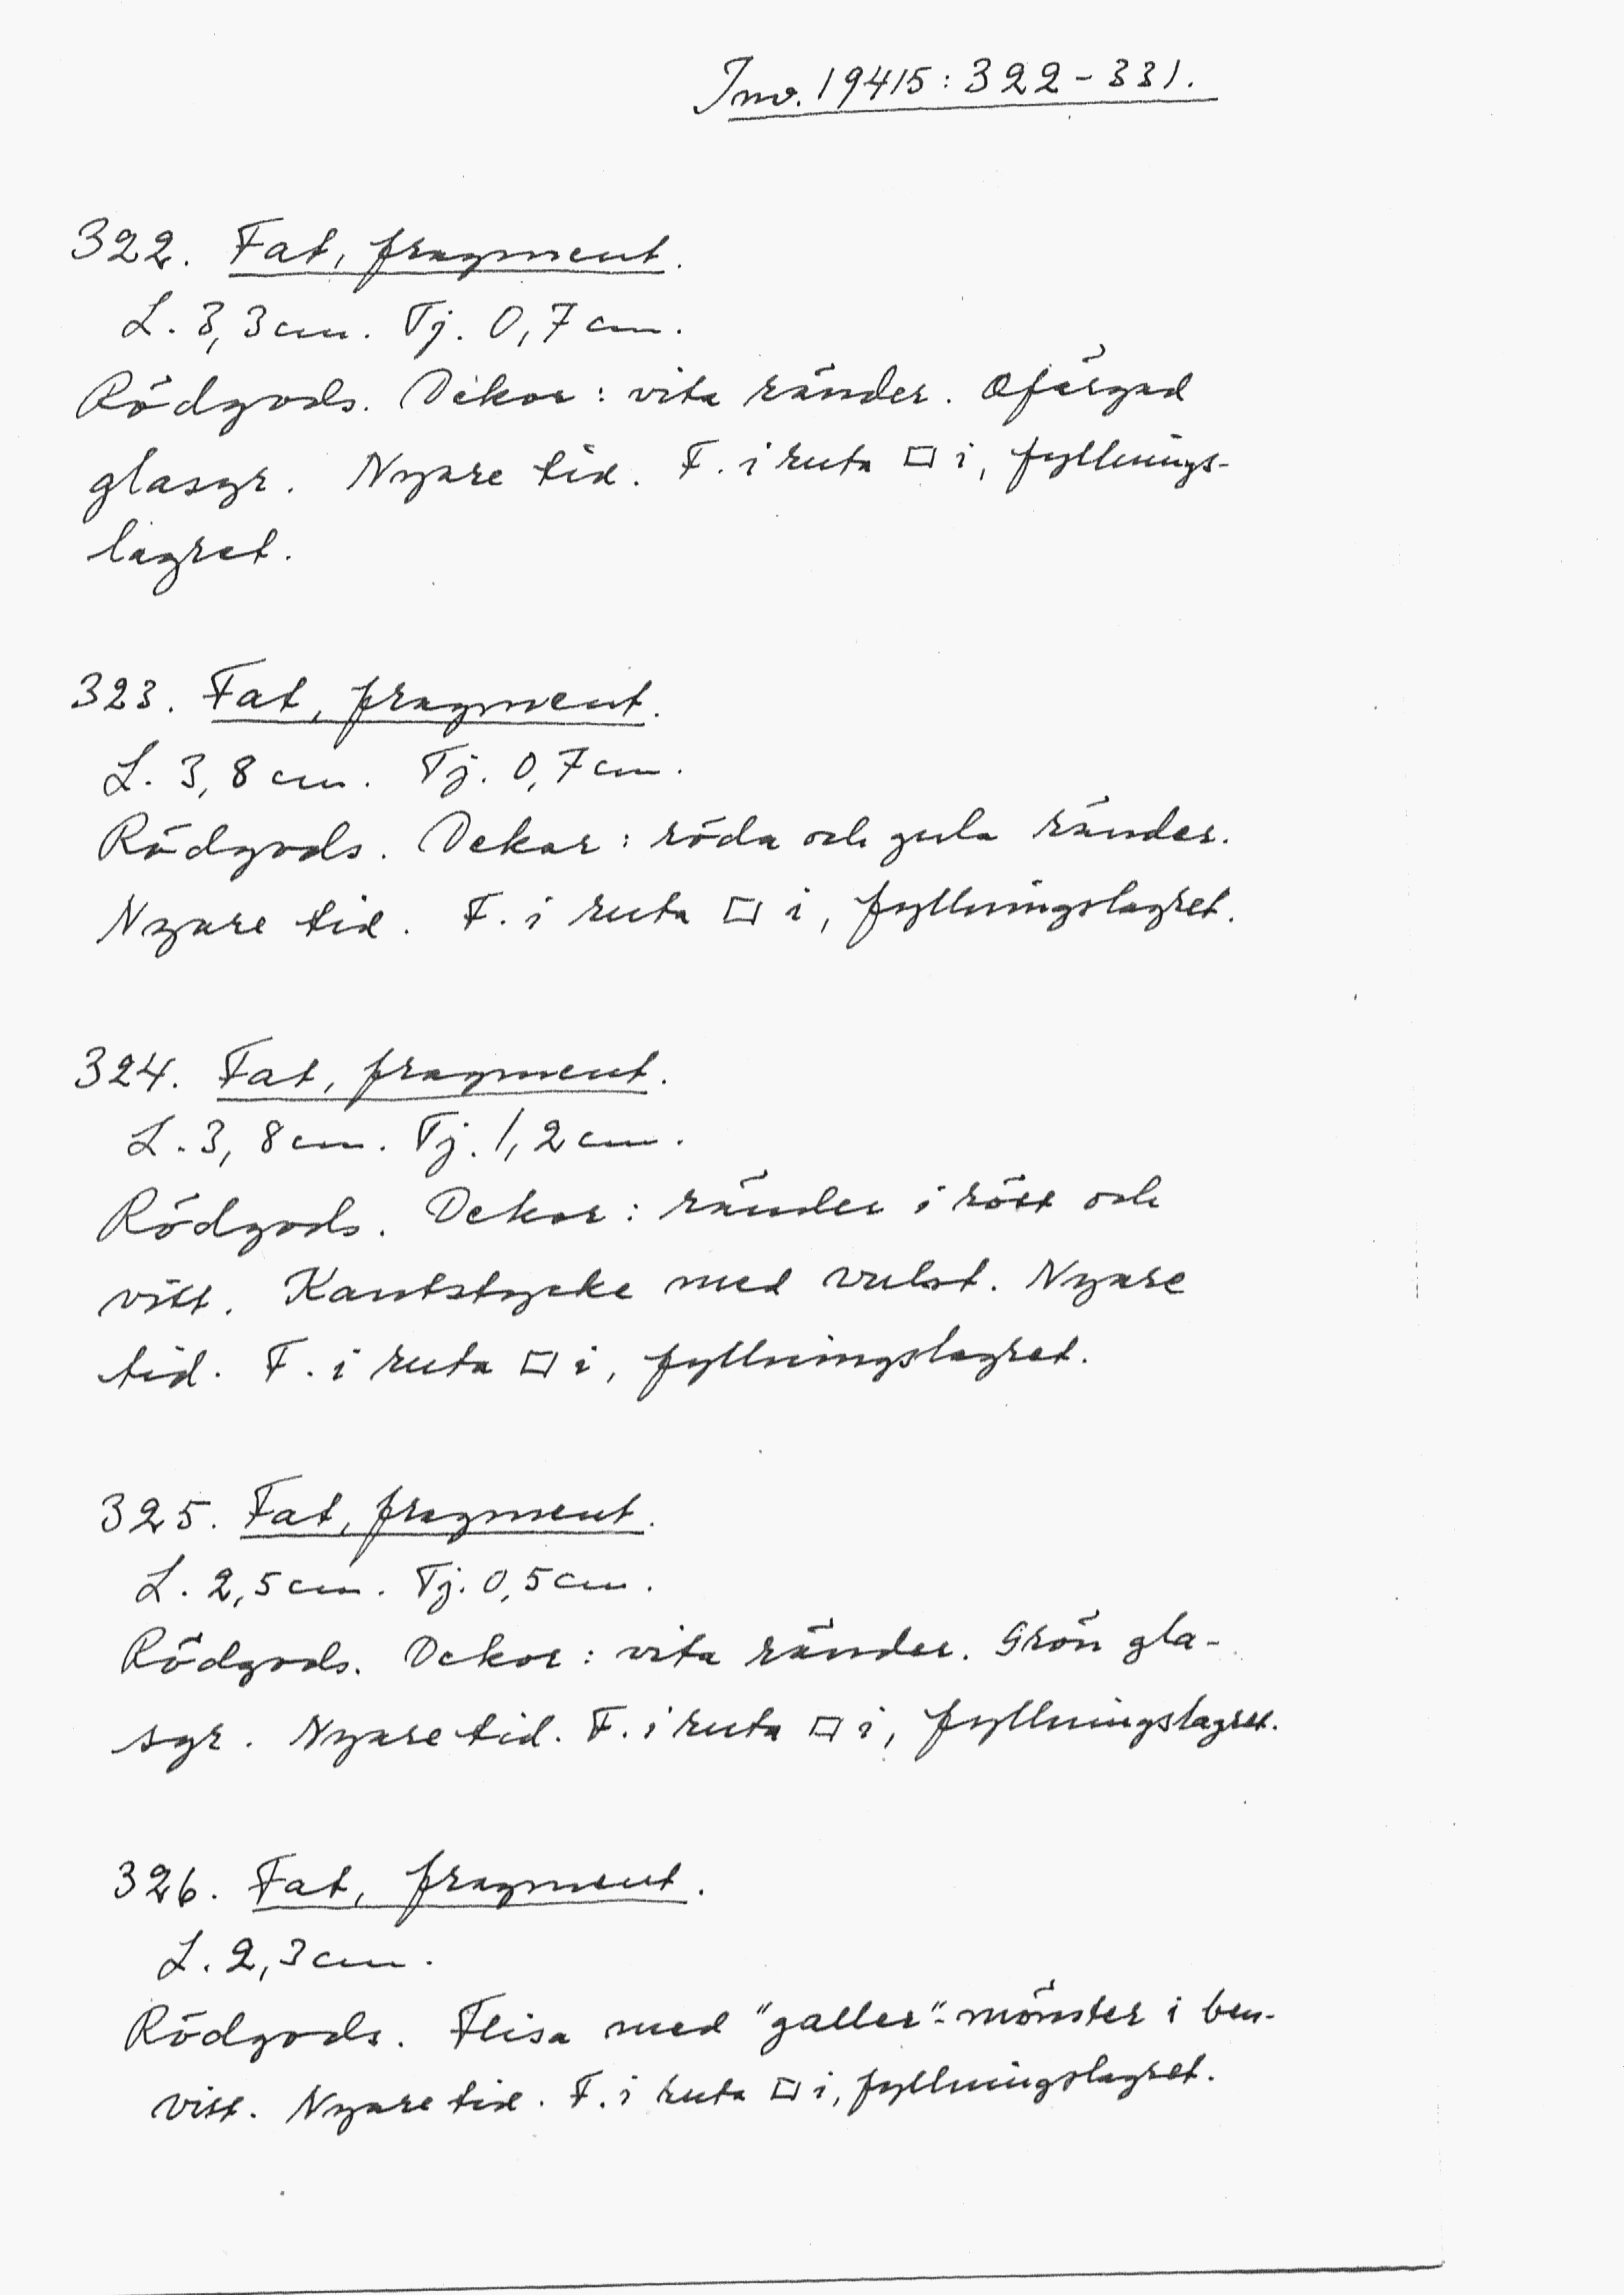 Inv. 19415: 322-331.
322. Fat, fragment.
L. 3,3 cm. Tj. 0,7 cm.
Rödgods. Dekor: vita ränder. Ofärgad
glasyr. Nyare tid. F. i ruta □ i, fyllnings-
lagret.
323. Fat, fragment.
L. 3,8 cm. Tj. 0,7 cm.
Rödgods. Dekor: röda och gula ränder.
Nyare tid. F. i ruta □ i, fyllningslagret.
324. Fat, fragment.
L. 3,8 cm. Tj. 1,2 cm.
Rödgods. Dekor: ränder i rött och
vitt. Kantstycke med vulst. Nyare
tid. F. i ruta □ i, fyllningslagret.
325. Fat, fragment.
L. 2,5 cm. Tj. 0,5 cm.
Rödgods. Dekor: vita ränder. Grön gla-
syr. Nyare tid. F. i ruta □ i, fyllningslagret.
326. Fat, fragment.
L. 2,3 cm.
Rödgods. Flisa med "galler"-mönster i ben-
vitt. Nyare tid. F. i ruta □ i, fyllningslagret.